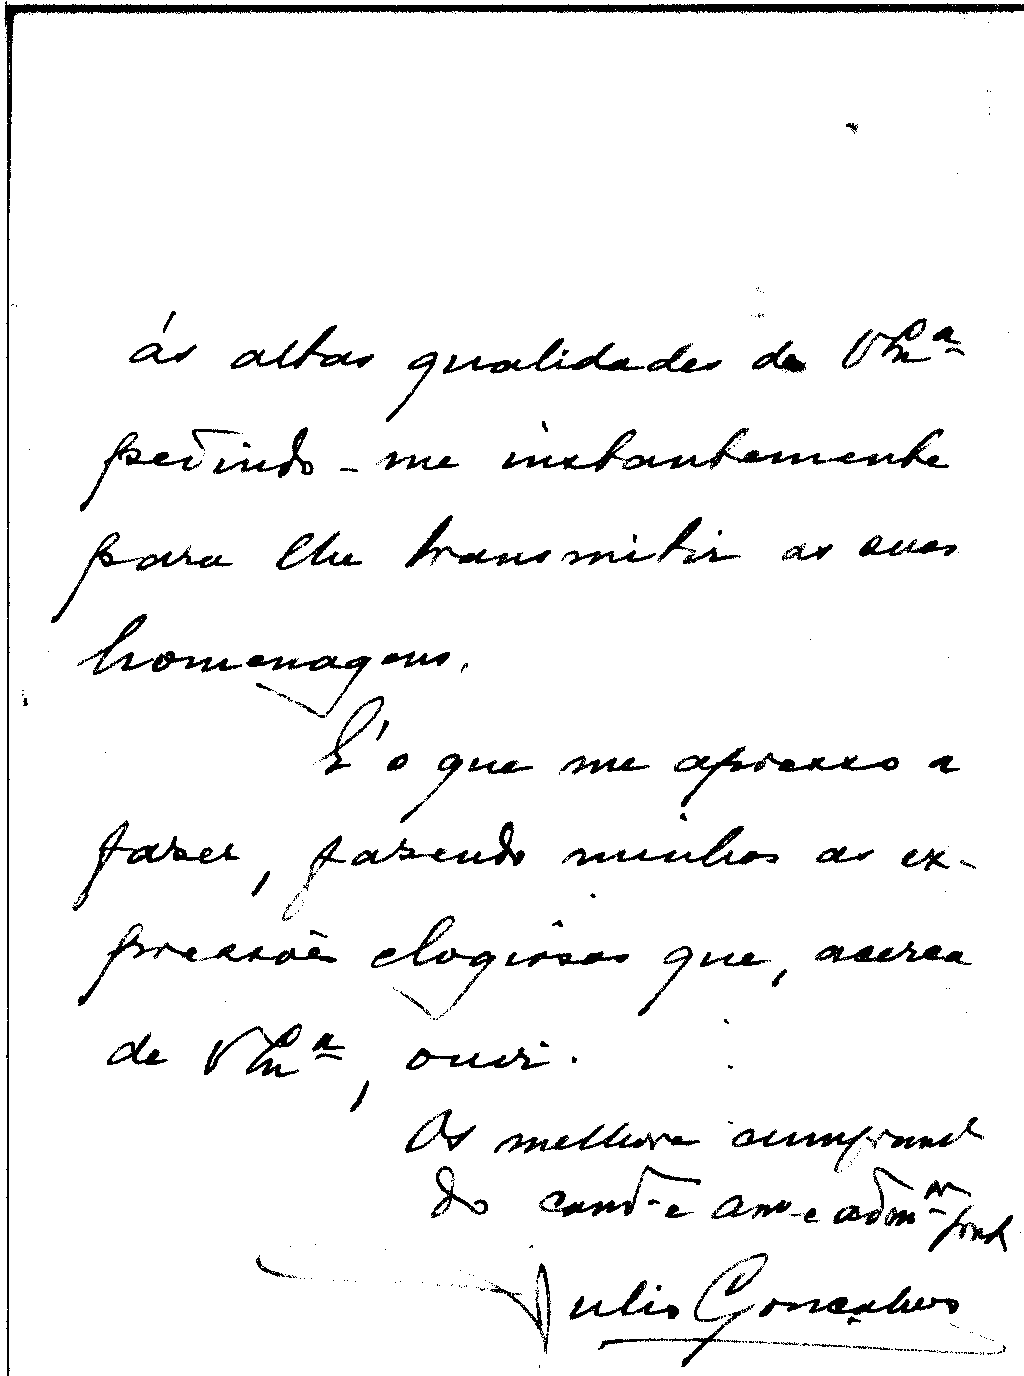 ás altas qualidades de V Exª
pedindo-me instantemente
para lhe transmitir as suas
homenagens.
É o que me apresso a
fazer, fazendo minhas as ex-
pressões elogiosas que, acerca
de V Exª, ouvi.
Os melhores
do
Julio Gonçalves